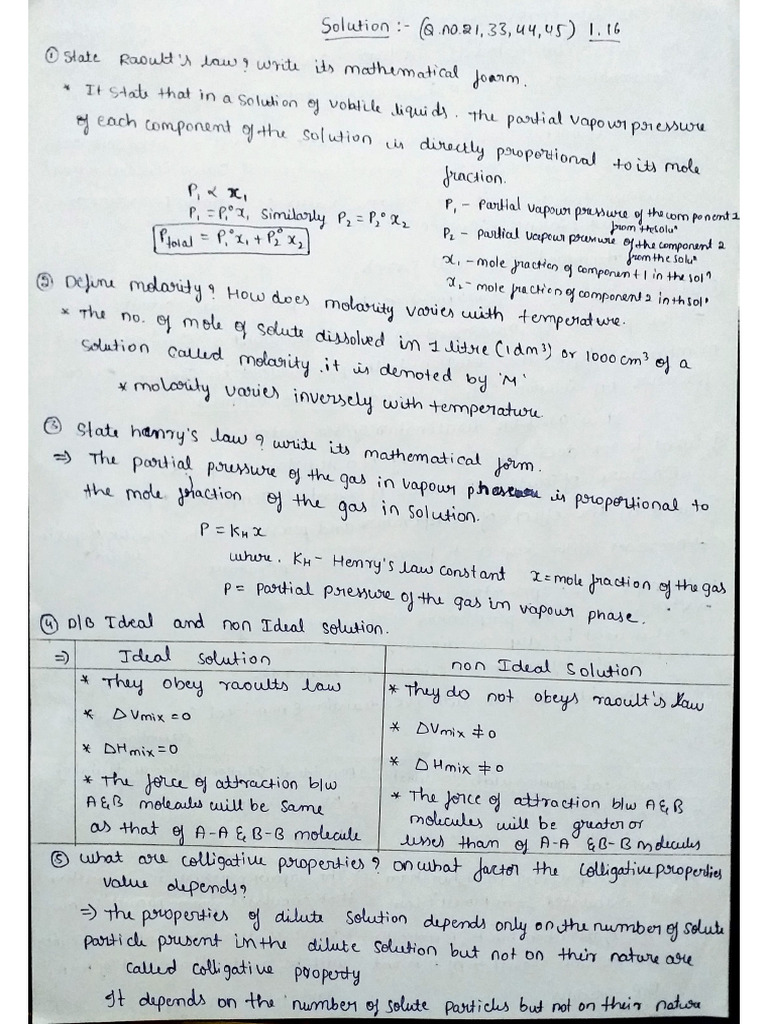 Solution :- (Q.no.21, 33, 44, 45) 1.16
① State Raoult's law? write its mathematical foarm.
* It state that in a solution of volatile liquids. The partial vapour pressure
of each component of the solution is directly proportional to its mole
fraction.
P₁ ∝ x₁
P₁ = P₁°x₁ Similarly P₂ = P₂°x₂
Ptotal = P₁°x₁ + P₂°x₂
P₁ - Partial vapour pressure of the component 1
from the soluⁿ
P₂ - partial vapour pressure of the component 2
from the soluⁿ
x₁ - mole fraction of component 1 in the solⁿ
x₂ - mole fraction of component 2 in th solⁿ
② Define molarity? How does molarity varies with temperature.
* The no. of mole of solute dissolved in 1 litre (1dm³) or 1000cm³ of a
solution called molarity. it is denoted by 'M'
* molarity varies inversely with temperature
③ State henry's law? write its mathematical form.
⇒ The partial pressure of the gas in vapour phase is proportional to
the mole fraction of the gas in solution.
P = KH x
where. KH - Henry's law constant x = mole fraction of the gas
P = Partial pressure of the gas in vapour phase.
④ D/B Ideal and non Ideal solution.
⇒ Ideal solution
* They obey raoults law
* ΔVmix = 0
* ΔHmix = 0
* The force of attraction b/w
A & B molecules will be same
as that of A-A & B-B molecule
non Ideal Solution
* They do not obeys raoult's law
* ΔVmix ≠ 0
* ΔHmix ≠ 0
* The force of attraction b/w A & B
molecules will be greater or
lesses than of A-A & B-B molecules
⑤ what are colligative properties? on what factor the colligative properties
value depends?
⇒ The properties of dilute solution depends only on the number of solute
particle present in the dilute solution but not on their nature are
called colligative property
It depends on the number of solute particles but not on their nature